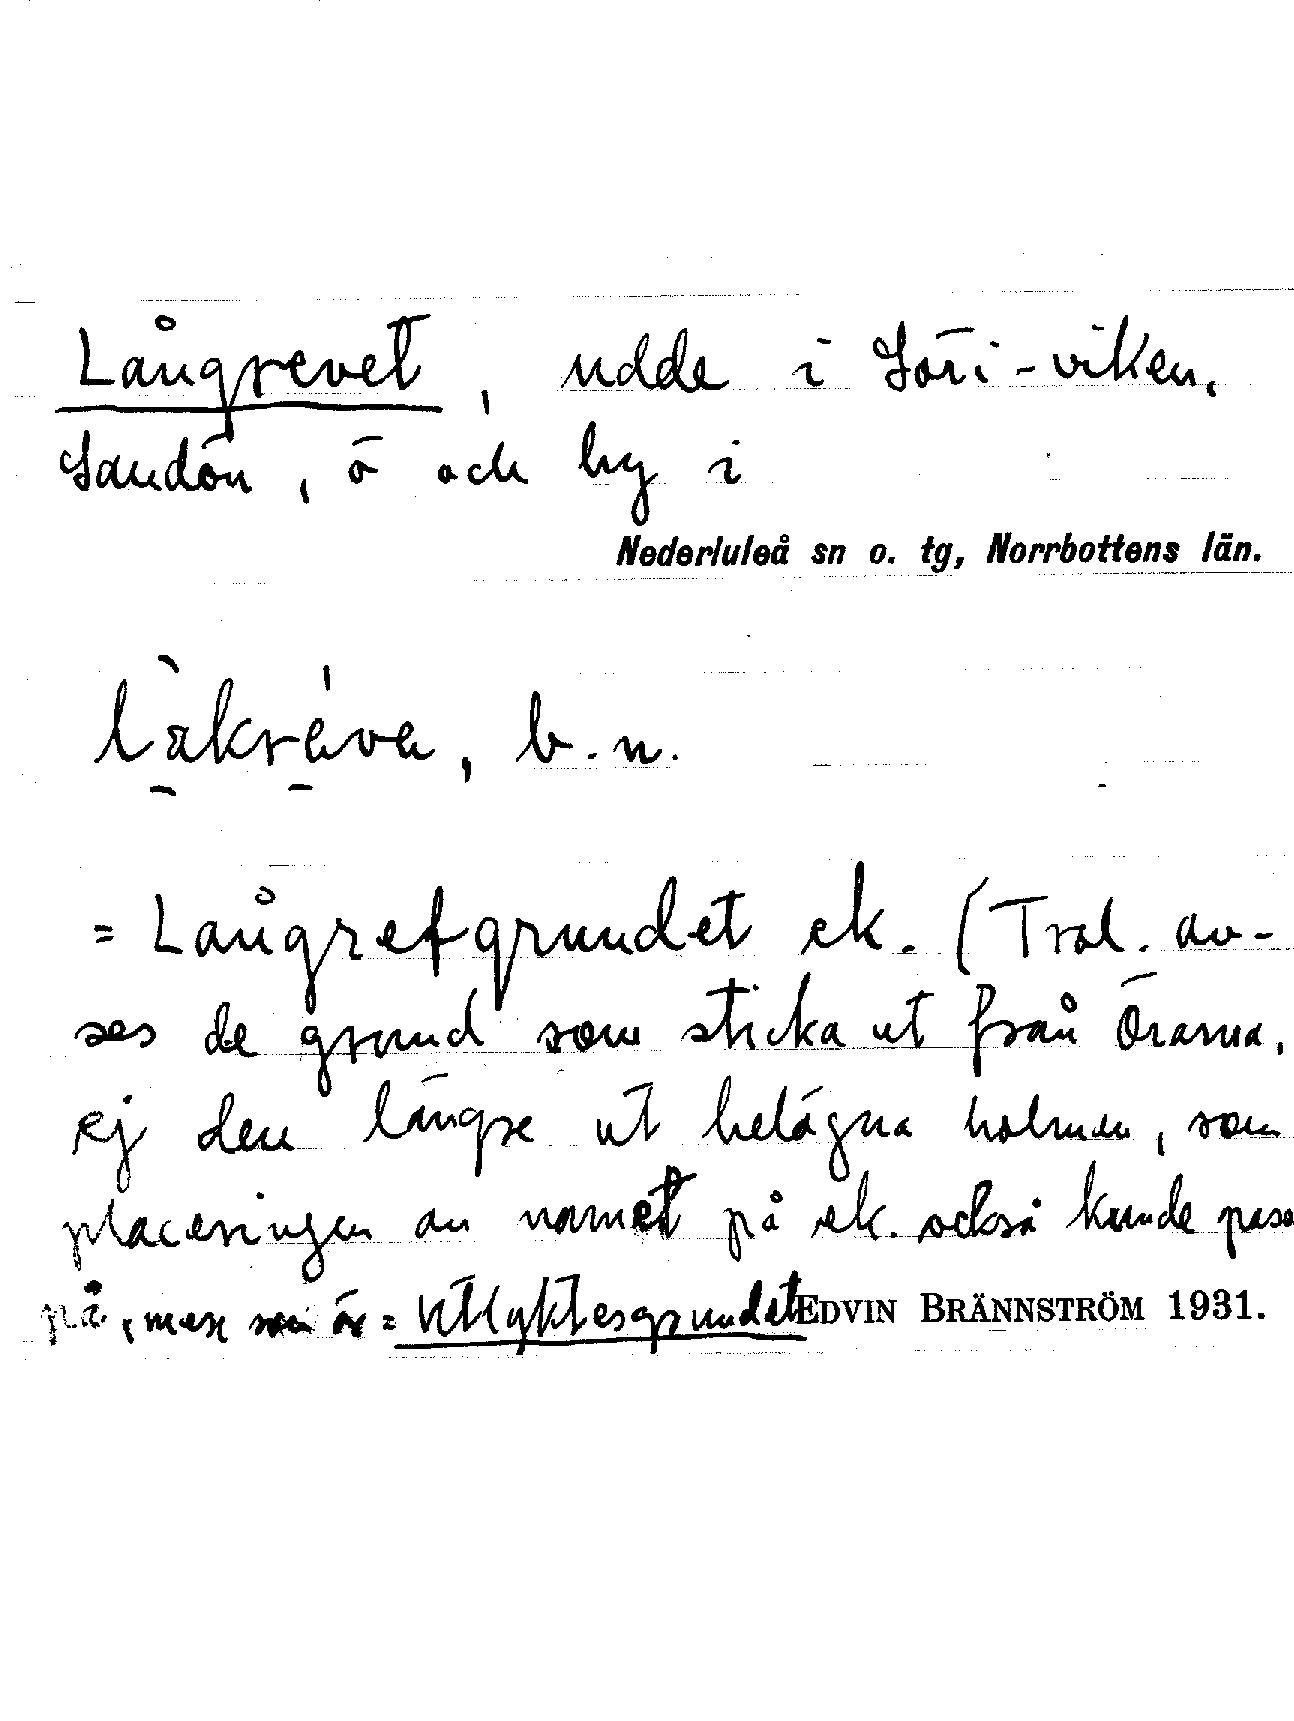 Långrevet, udde i Söri-viken,
Sandön, ö och by i
Nederluleå sn o. tg, Norrbottens län.
b. n.
= Långrefgrundet ek. (Trol. av-
ses de grund som sticka ut från Örarna,
ej den längre ut belägna holmen, som
placeringen av namnet på ek. också kunde passa
på, men som är = Utlyktesgrundet
EDVIN BRÄNNSTRÖM 1931.